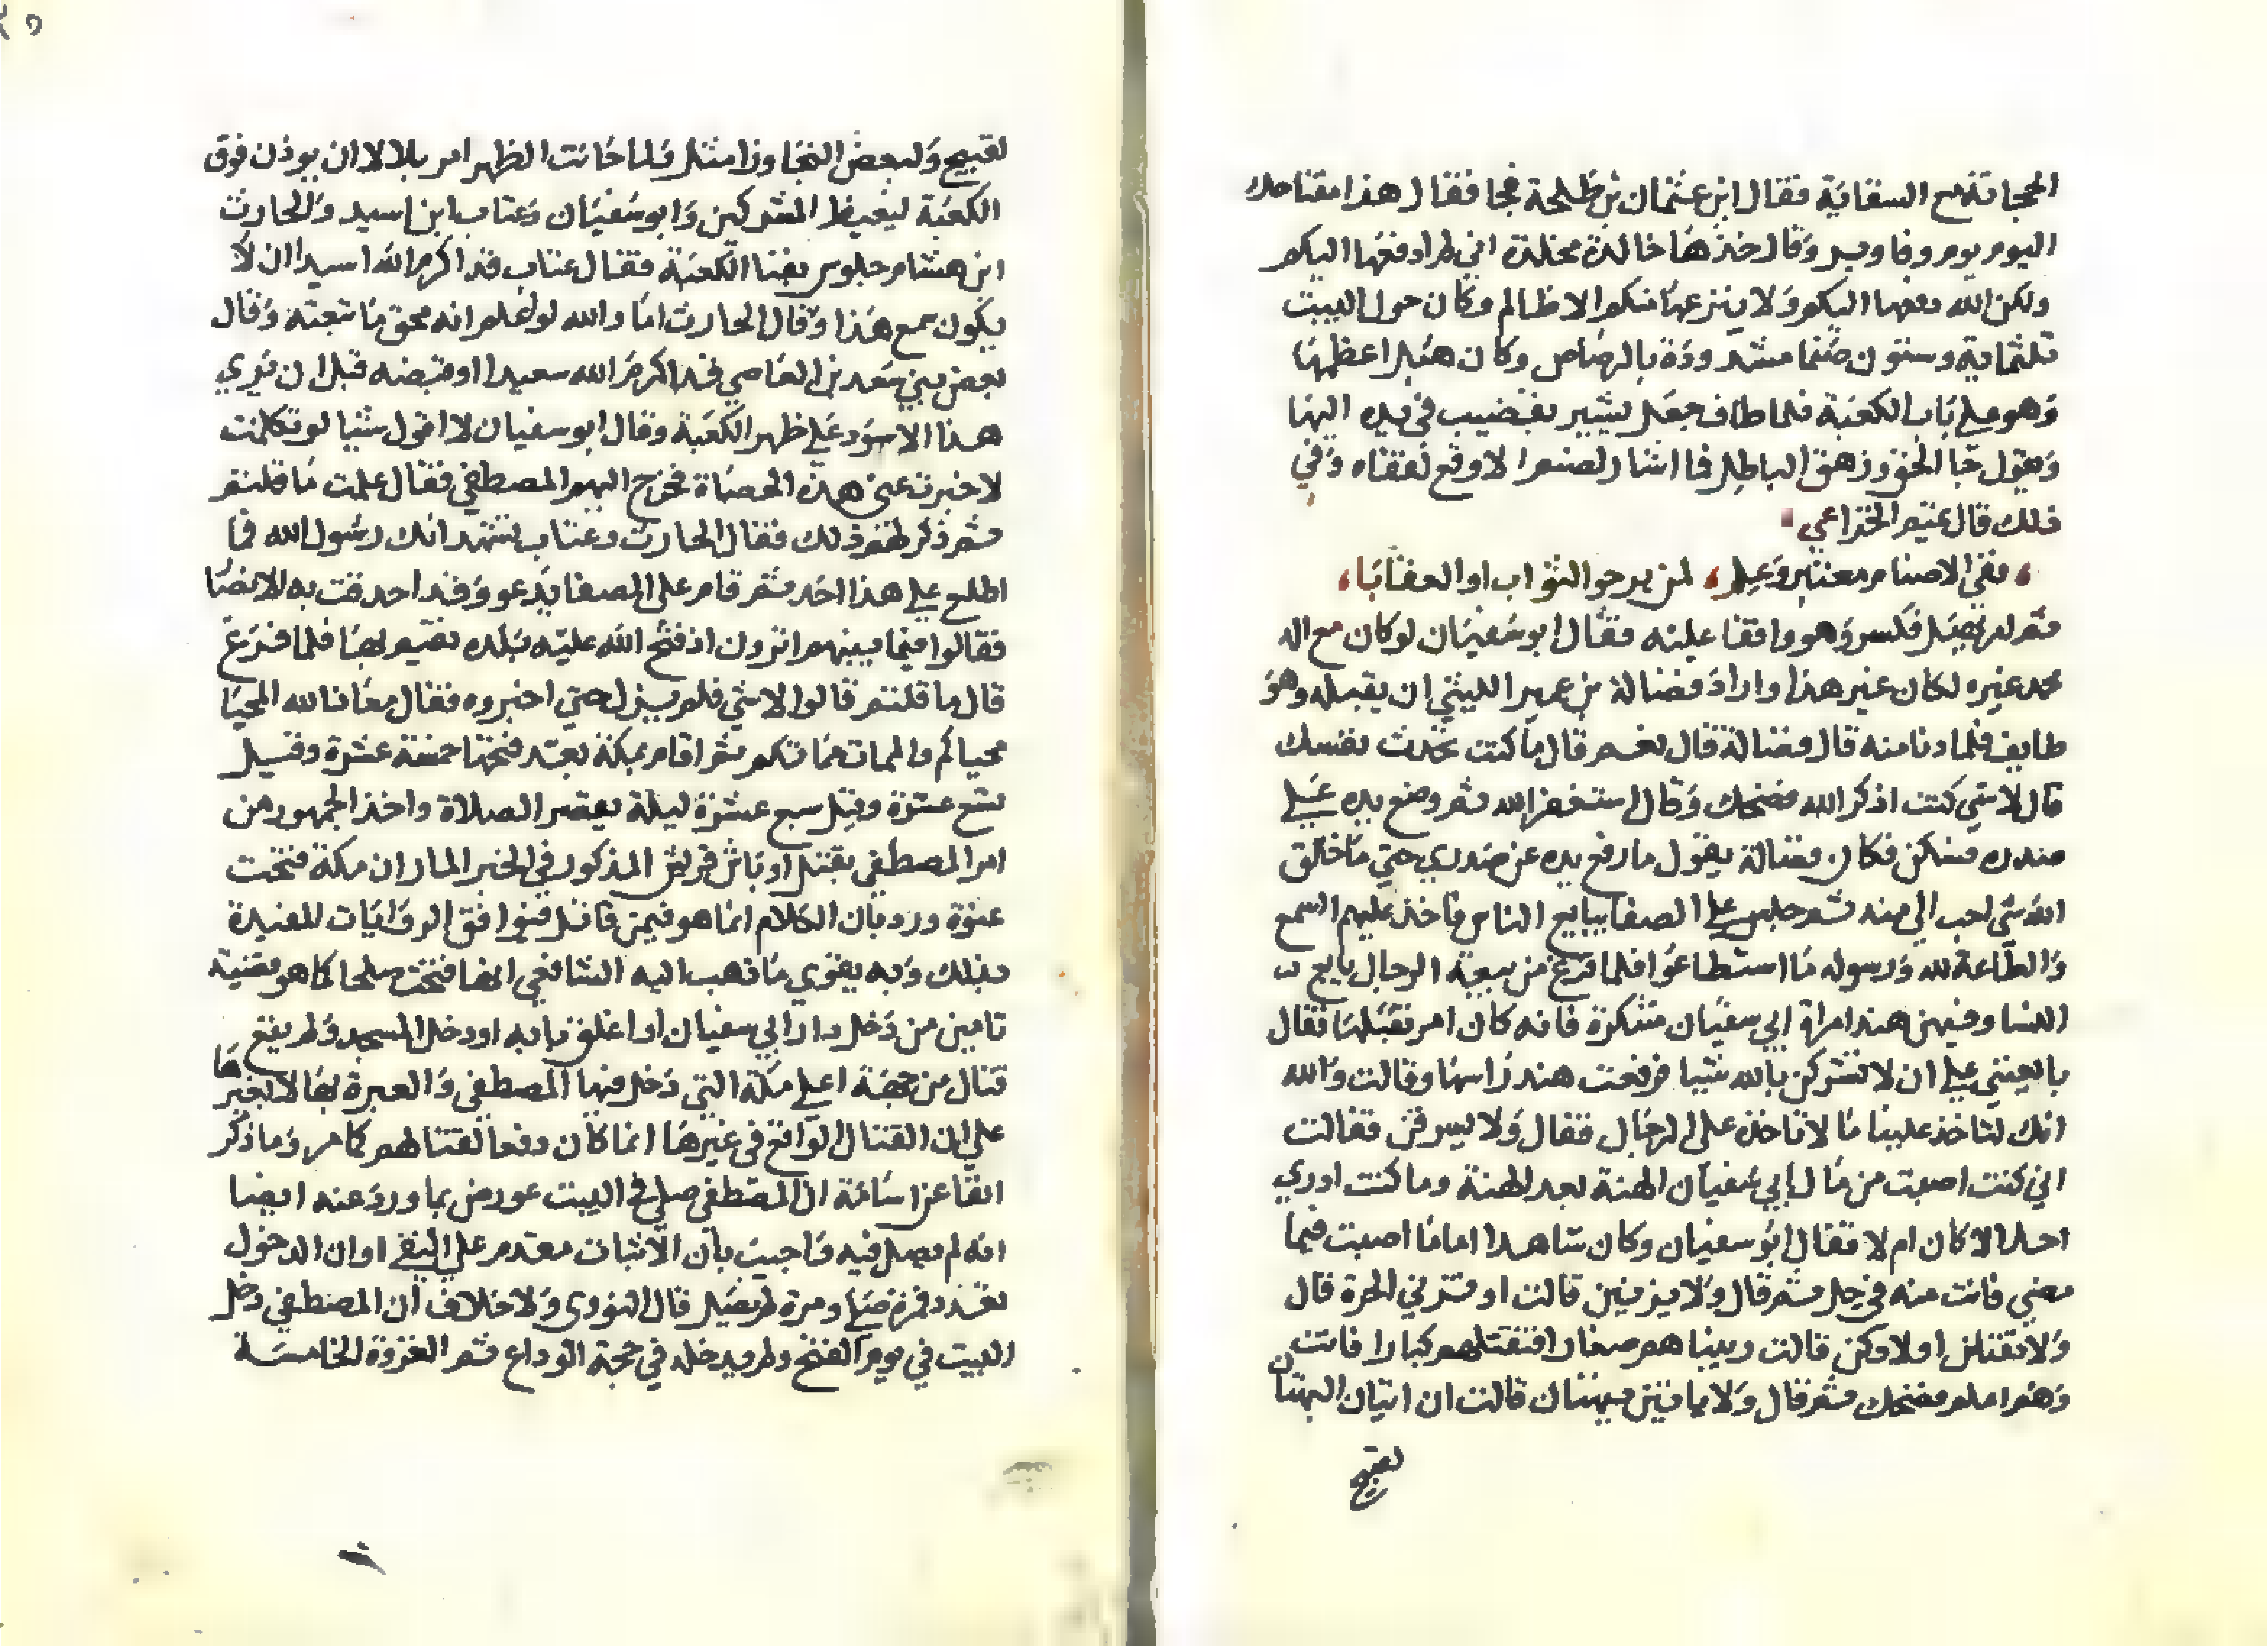 الحجابة مع السقاية فقال ابن عثمان بن طلحة فجا فقال هذا مفتاحك
اليوم يوم وفا وبر وقال خذها خالدة مخلدة اني لم ادفعها اليكم
ولكن الله دفعها اليكم ولا ينزعها منكم الا ظالم وكان حول البيت
ثلثماية وستون صنما مشدودة بالرصاص وكان هبل اعظمها
وهو علي باب الكعبة فلما طاف جعل يشير بقضيب في يده اليها
ويقول جا الحق وزهق الباطل فما اشار لصنم الا وقع لقفاه وفي
ذلك قال تميم الخزاعي
ففي الاصنام معتبر وعلم لمن يرجو الثواب او العقابا
ثم امر بهبل فكسر وهو واقفا عليه فقال ابو سفيان لو كان مع اله
محمد غيره لكان غير هذا واراد فضالة بن عمير الليثي ان يقتله وهو
طايف فلما دنا منه قال فضالة قال نعم قال ما كنت تحدث نفسك
قال لا شي كنت اذكر الله فضحك وقال استغفر الله ثم وضع يده علي
صدره فسكن فكان فضالة يقول ما رفع يده عن صدري حتي ما خلق
الله شي احب الي منه ثم جلس علي الصفا يبايع الناس فاخذ عليهم السمع
والطاعة لله ورسوله ما استطاعوا فلما فرغ من بيعة الرجال بايع
النسا وفيهن هند امراة ابي سفيان متنكرة فانه كان امر بقتلها فقال
بايعنني علي ان لا تشركن بالله شيا فرفعت هند راسها وقالت والله
انك لتاخذ علينا ما لا تاخذه علي الرجال فقال ولا تسرقن فقالت
اني كنت اصبت من مال ابي سفيان الهنة بعد الهنة وما كنت ادري
احلالا كان ام لا فقال ابو سفيان وكان شاهدا اما ما اصبت فيما
مضي فانت منه في حل ثم قال ولا يزنين قالت او تزني الحرة قال
ولا تقتلن اولادكن قالت ربيناهم صغارا فتقتلهم كبارا فانت
وهم اعلم فضحك ثم قال ولا ياتين ببهتان قالت ان اتيان البهتان
لقبيح
لقبيح ولبعض التجاوز امثل فلما حانت الظهر امر بلالا ان يوذن فوق
الكعبة ليغيظ المشركين وابو سفيان وعتاب ابن اسيد والحارث
ابن هشام جلوس بفنا الكعبة فقال عتاب قد اكرم الله اسيدا ان لا
يكون سمع هذا وقال الحارث اما والله لو اعلم انه محق ما تبعته وقال
بعض بني سعد بن العاصي قد اكرم الله سعيدا اذ قبضه قبل ان يري
هذا الاسود علي ظهر الكعبة وقال ابو سفيان لا اقول شيا لو تكلمت
لاخبرت عني هذه الحصاة فخرج اليهم المصطفي فقال علمت ما قلتم
ثم ذكر لهم ذلك فقال الحارث وعتاب نشهد انك رسول الله فما
اطلع علي هذا احد ثم قام علي الصفا يدعو وقد احدقت به الانصار
فقالوا فيما بينهم اترون اذ فتح الله عليه بلده يقيم بها فلما فرغ
قال ما قلتم قالوا لا شي فلم يزل حتي اخبروه فقال معاذ الله المحيا
محياكم والممات مماتكم ثم اقام بمكة بعد فتحها خمسة عشرة وقيل
تسع عشرة وقيل سبع عشرة ليلة يقصر الصلاة واخذ الجمهور من
امر المصطفي بقتل اوباش قريش المذكور في الخبر المار ان مكة فتحت
عنوة ورد بان الكلام انما هو فيمن قاتل فيوافق الروايات المفيدة
بذلك وبه يقوي ما ذهب اليه الشافعي انها فتحت صلحا كما هو قضية
تامين من دخل دار ابي سفيان او اغلق بابه او دخل المسجد ولم يقع
قتال من جهة اعلي مكة التي دخل منها المصطفي والعبرة بها لا بغيرها
علي ان القتال الواقع في غيرها انما كان دفعا لقتالهم كما مر وما ذكر
انفا عن اسامة ان المصطفي صلي في البيت عورض بما ورد عنه ايضا
انه لم يصل فيه واجيب بان الاثبات مقدم علي النفي او ان الدخول
تعدد فمرة صلي ومرة لم يصل قال النووي ولا خلاف ان المصطفي دخل
البيت في يوم الفتح ولم يدخله في حجة الوداع ثم الغزوة الخامسة